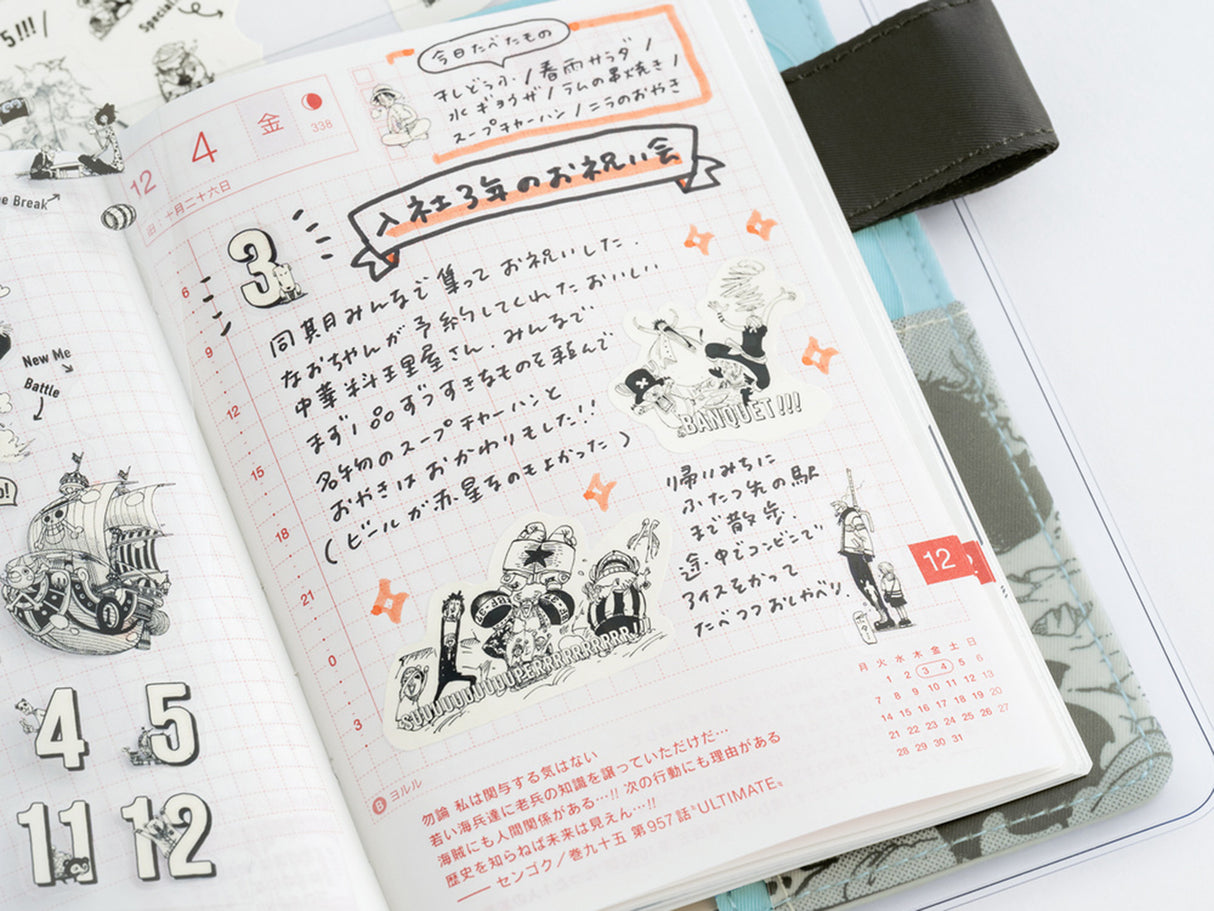 5!!!/
Speciali
e Break
New Me
Battle
o!
4
5
11
12
12
4
金
338
旧 十月二十六日
今日たべたもの
干しどうふ/春雨サラダ/
水ギョウザ/ラムの串焼き/
スープチャーハン/ニラのおやき
入社3年のお祝い会
3
同期みんなで集ってお祝いした.
なおちゃんが予約してくれたおいしい
中華料理屋さん.みんなで
まず1品ずつすきなものを頼んで
名物のスープチャーハンと
おやきはおかわりもした!!
(ビールが赤星なのもよかった)
BANQUET!!!
帰りみちに
ふたつ先の駅
まで散歩.
途中でコンビニで
アイスをかって
たべつつおしゃべり.
SUUUUUUUUUPERRRRRRRRRR!!!
6
9
12
15
18
21
0
3
12
月 火 水 木 金 土 日
1 2 3 4 5 6
7 8 9 10 11 12 13
14 15 16 17 18 19 20
21 22 23 24 25 26 27
28 29 30 31
B ヨルル
勿論 私は関与する気はない
若い海兵達に老兵の知識を譲っていただけだ…
海賊にも人間関係がある…!! 次の行動にも理由がある
歴史を知らねば未来は見えん…!!
――センゴク/巻九十五 第957話〝ULTIMATE〟